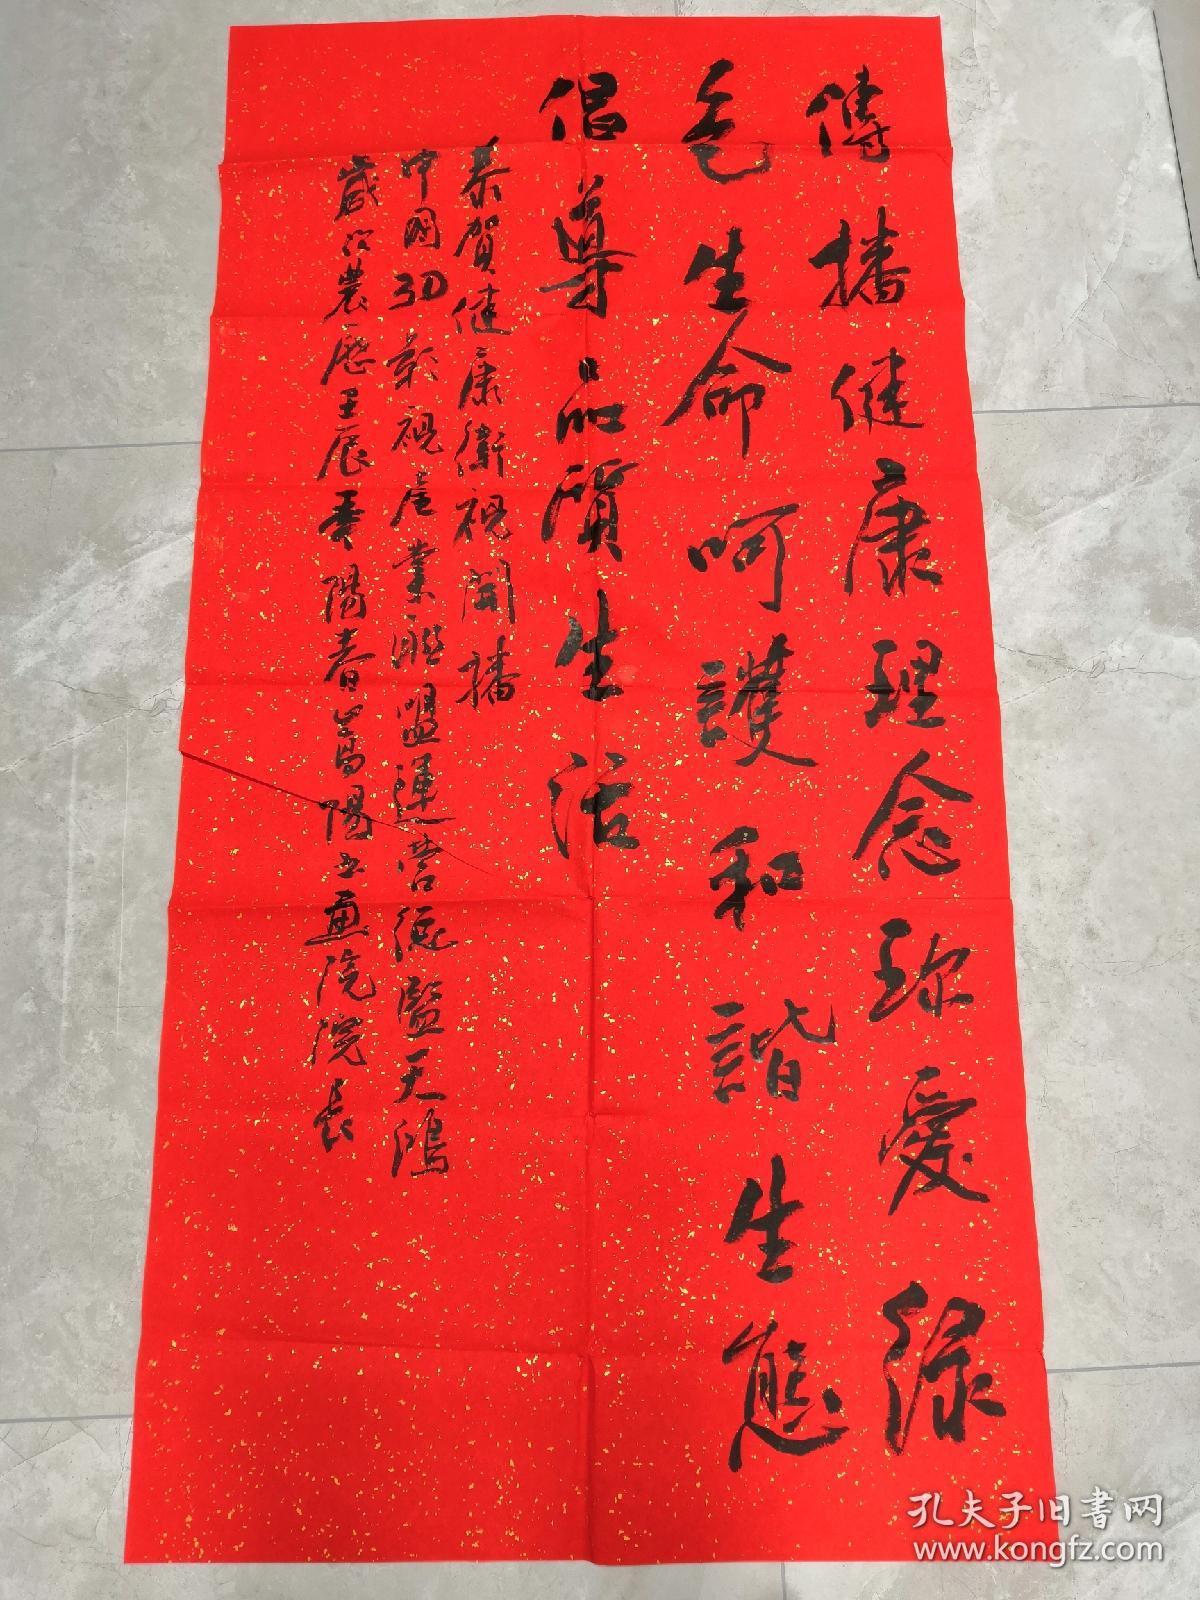 傳播健康理念珍愛綠
色生命呵護和諧生態
倡導品質生活
恭賀健康衛視開播
中國3D影視產業聯盟運营總監天鴻
歲次農歷壬辰季陽春萬陽书画院院长
孔夫子旧书网
www.kongfz.com